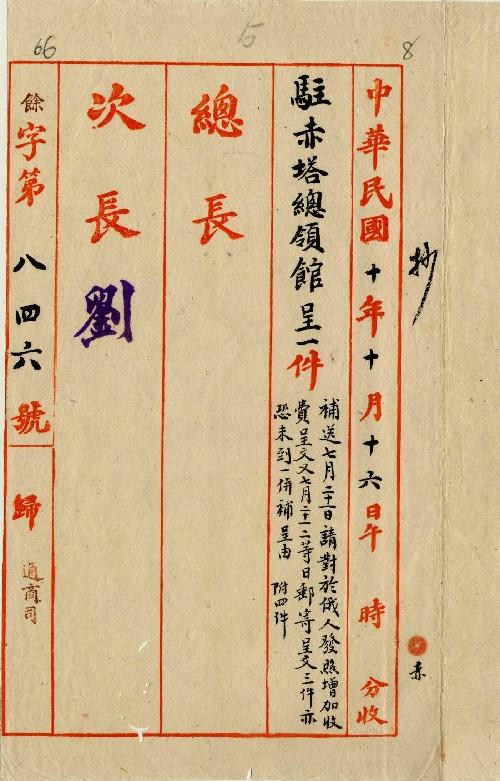 66
5
8
抄
赤
中華民國十年十月十六日午 時 分收
駐赤塔總領館呈一件
補送七月二十一日請對於俄人發照增加收
費呈文又七月二十一二等日郵寄呈文三件亦
恐未到一併補呈由 附四件
總長
次長 劉
餘字第八四六號
歸 通商司